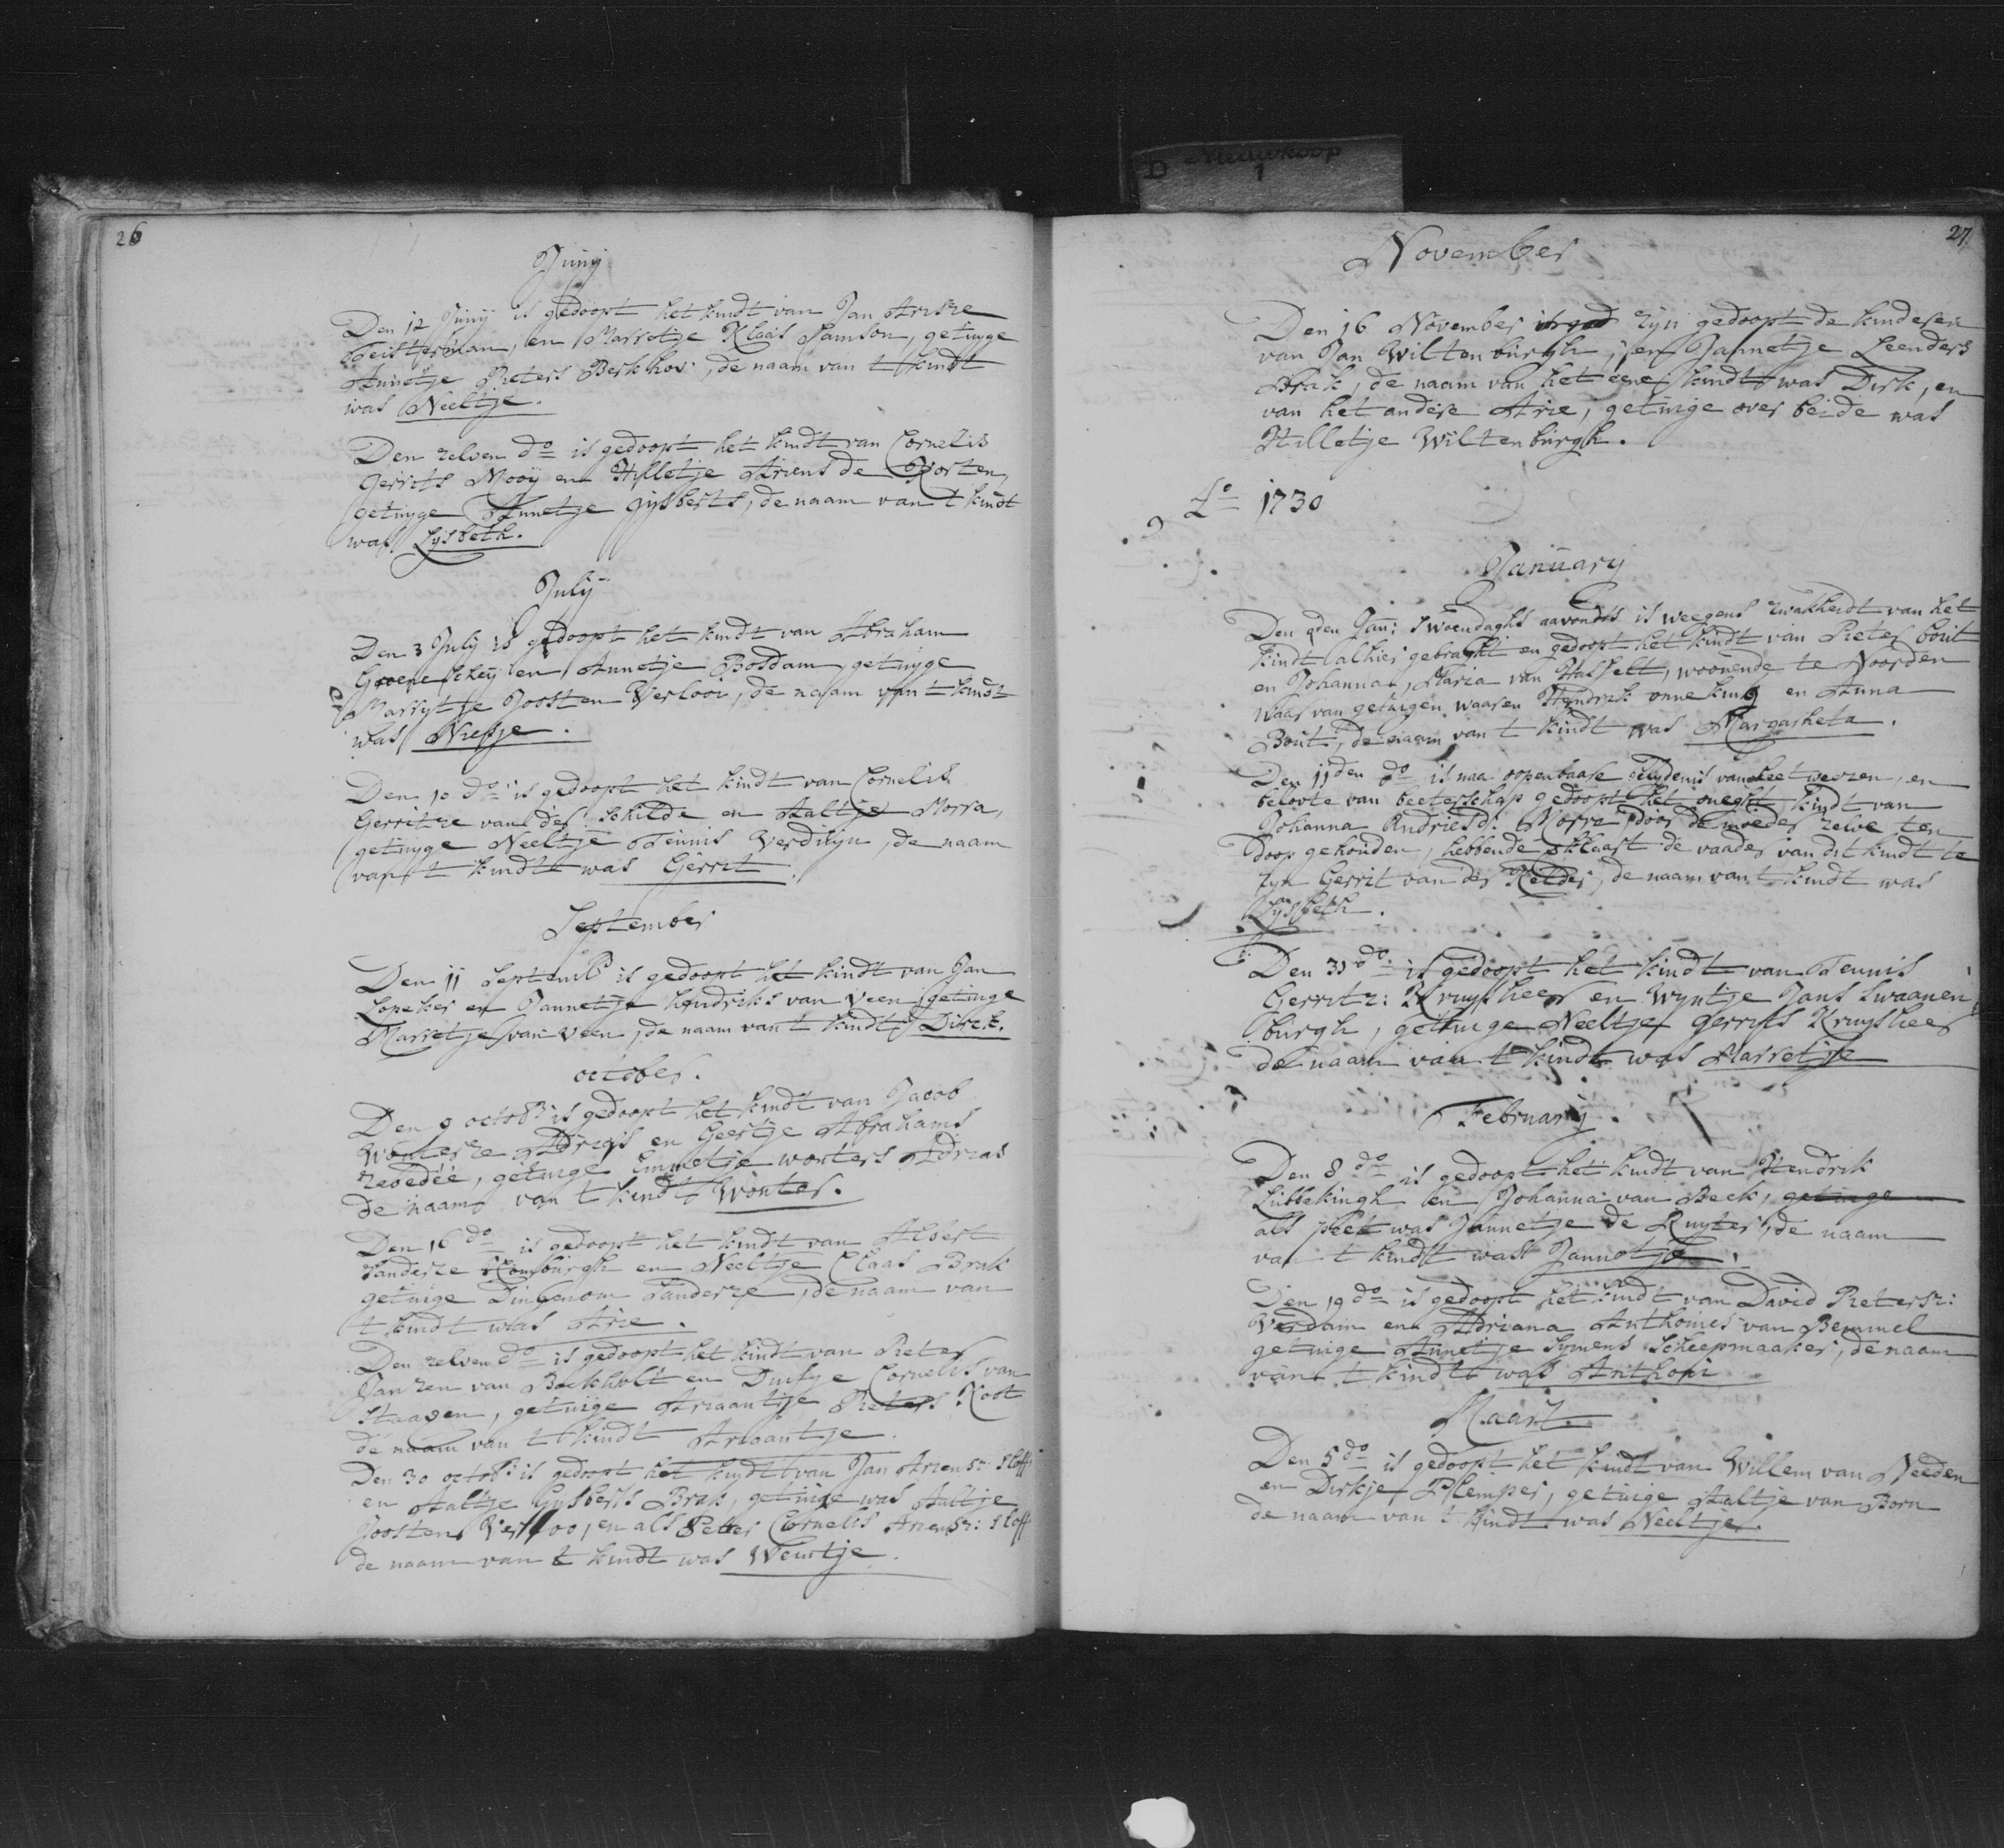 D Nieuwkoop
1
26
Junij
Den 12 Junij is gedoopt het kindt van Jan Arisze
Teisterman, en Marretje Klaas Samson, getuyge
Annetje Pieters Berkhov, de naam van t kindt
was Neeltje.
Den zelven do is gedoopt het kindt van Cornelis
Gerrits Mooij en Hilletje Ariens de
getuyge Annetje Gijsberts, de naam van t kindt
was Lijsbeth.
July
Den 3 July is gedoopt het kindt van Abraham
en Annetje Bosdam, getuyge
Marrytje Joosten Verlooi, de naam van t kindt
was Niesje.
Den 10 do is gedoopt het kindt van Cornelis
Gerritze van der Schilde en Aaltje Morra,
getuyge Neeltje Teunis Verduyn, de naam
van t kindt was Gerrit.
September
Den 11 Septembr is gedoopt het kindt van Jan
en Jannetje Hendriks van Veen, getuige
Marretje van Veen, de naam van t kindt Dirck.
october.
Den 9 octobr is gedoopt het kindt van Jacob
Wouterze en Geertje Abrahams
zebedéé, getuige Emmetje wouters
de naam van t kindt Wouter.
Den 16 do is gedoopt het kindt van Albert
Sanderze Romburgh en Neeltje Claas Brak
getuige Dingenom Sanderze, de naam van
t kindt was Arie.
Den zelven do is gedoopt het kindt van Pieter
Janzen van Bockholt en Cornelis van
Staaven, getuige Ariaantije Pieters Koot
de naam van t kindt Ariaantje.
Den 30 octobr is gedoopt het kindt van Jan Ariensz: Sloff
en Aaltje Gysberts Brak, getuige was Aaltje
Joosten Verlooi, en als Peter Cornelis Ariensz: Sloff
de naam van t kindt was Weintje.
27
November
Den 16 November zijn gedoopt de kinderen
van Jan Wiltenburgh, en Jannetje Leenders
Brak, de naam van het eene kindt was Dirk, en
van het andere Arie, getuige over beide was
Hilletje Wiltenburgh.
Ao 1730
January
Den 4den Jan: s woendaghs aavondts is weegens zwakheidt van het
kindt alhier gebraght en gedoopt het kindt van Pieter bout
en Johanna Maria van Hasselt, woonende te Noorden
waar van getuigen waaren Hendrik onneking en Anna
Bout, de naam van t kindt was Margarheta.
Den 11den do is naa oopenbaare van leetweezen, en
belofte van beeterschap gedoopt het kindt van
Johanna Andriesd: Morre door de moeder zelve ten
doop gehouden, hebbende de vaader van dit kindt te
zyn Gerrit van der Kelder, de naam van t kindt was
Lysbeth.
Den 31 do: is gedoopt het kindt van Teunis
Gerritz: Kruysheer en Wyntje Jans Swaanen
burgh, getuige Neeltje Gerrits Kruysheer
de naam van t kindt was Marretje
February.
Den 8 do is gedoopt het kindt van Hendrik
Lubbekingh en Johanna van Beek, getuige
als peet was Jannetje de Ruyter, de naam
van t kindt was Jannetje.
Den 19 do is gedoopt het kindt van David Pietersz:
Verdam en Adriana Anthonies van Bemmel
getuige Annetje Symens Scheepmaaker, de naam
van t kindt was Anthoni
Maart.
Den 5 do is gedoopt het kindt van Willem van Needen
en Dirkje Plemper, getuige Aaltje van Born
de naam van t kindt was Neeltje.